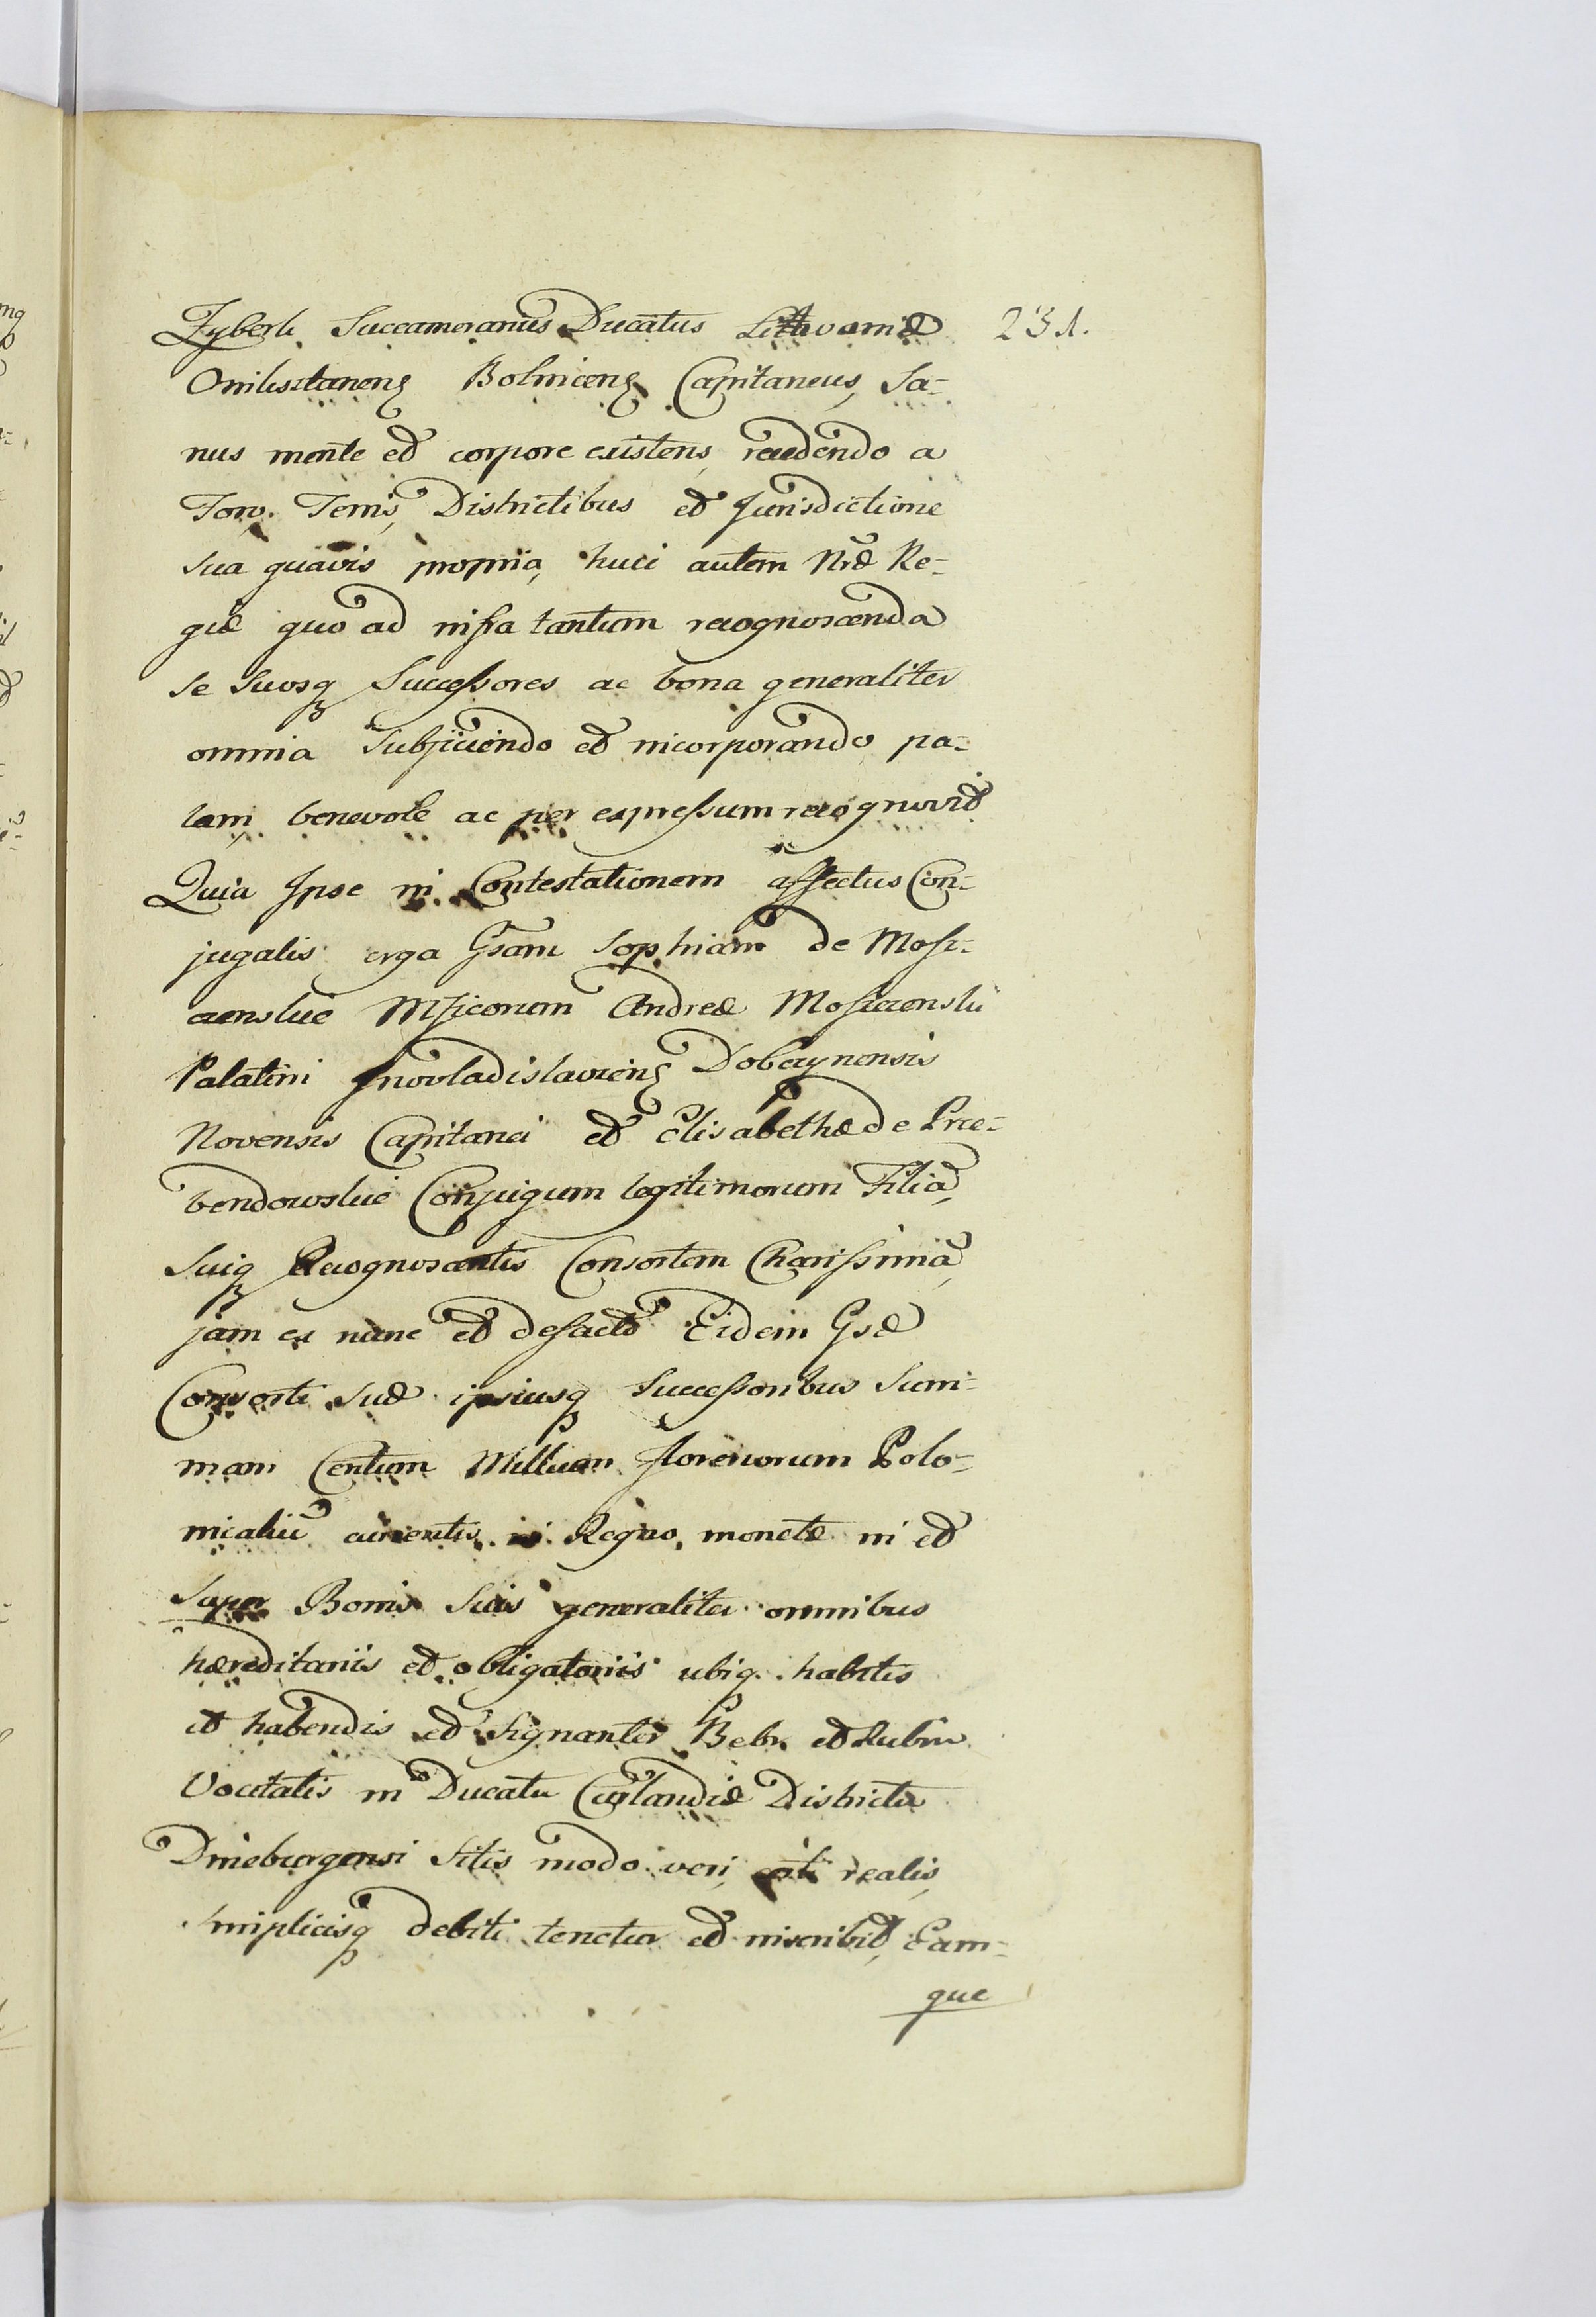 Zyberk Succamerarius Ducatus Lithvaniæ 231.
Bolnicens Capitaneus, Sa=
nus mente et corpore existens, recedendo a
Foro. Terris, Districtibus et Jurisdictione
sua quavis propria, huic autem Nræ Re=
giæ quo ad infra tantum recognoscenda
se suosq Successores ac bona generaliter
omnia subjiciendo et incorporando pa=
lam, benevole ac per expressum recognovit
Quia Ipse in Contestationem affectus Con=
jugalis erga Gsam Sophiam de Mosz=
czenskie Mficorum Andreæ Moszczenski
Palatini Inovladislaviens Dobrzynensis
Novensis Capitanei et Elisabethæ de Prze=
bendowskie Conjugum legitimorum Filiã,
Suiq Recognoscentis Consortem Charissimã,
jam ex nunc et defacto Eidem Gsæ
Consorti suæ ipsiusq Successoribus Sum=
mam Centum Millium florenorum Polo=
nicaliũ currentis in Regno monetæ in et
super Bonis Suis generaliter omnibus
hæreditariis et obligatoriis ubiq. habitis
et habendis et signanter Bebr. et Rubin
Vocitatis in Ducatu Curlandiæ Districtu
Dineburgensi sitis modo veri, certi realis,
simplicisq debiti tenetur et inscribit, Eam=
que